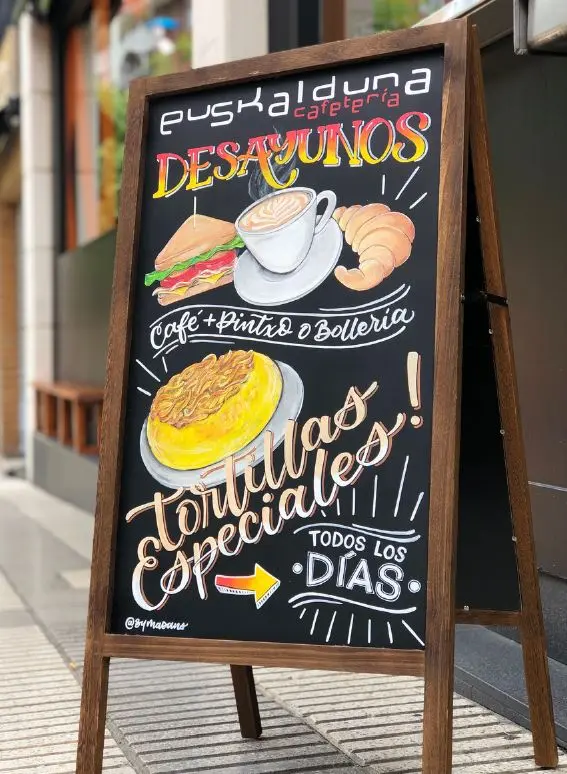 euskalduna
cafetería
DESAYUNOS
Café + Pintxo o Bollería
tortillas
Especiales!
TODOS LOS
DÍAS